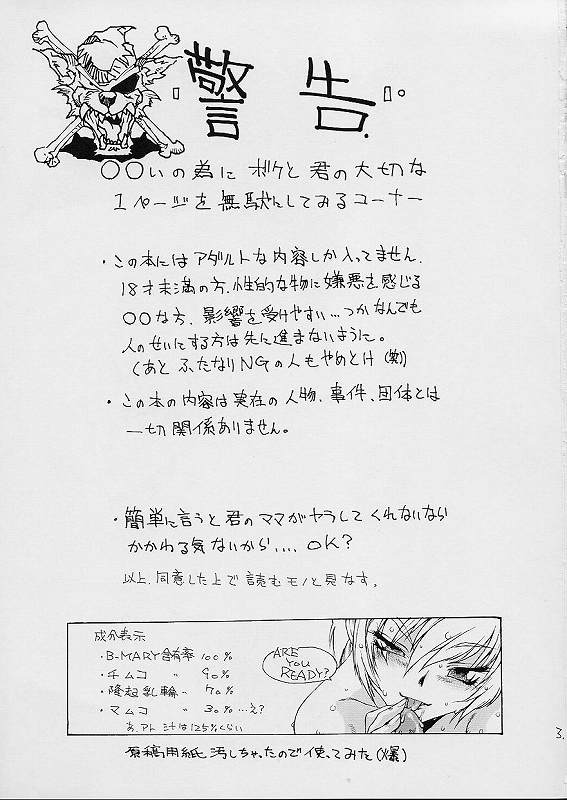 警告.
○○いの為にボクと君の大切な
1ページを無駄にしてみるコーナー
・この本にはアダルトな内容しか入ってません.
18才未満の方.性的な物に嫌悪を感じる
○○な方.影響を受けやすい…つかなんでも
人のせいにする方は先に進まないように。
(あと ふたなりNGの人もやめとけ(笑)
・この本の内容は実在の人物、事件、団体とは
一切関係ありません。
・簡単に言うと君のママがヤラしてくれないなら
かかわる気ないから.... OK?
以上.同意した上で読むモノと見なす。
成分表示
・B-MARY含有率 100%
・チムコ 〃 90%
・隆起乳輪 〃 70%
・マムコ 〃 30%…え?
あ、アト 汁は125%くらい
ARE
YOU
READY?
原稿用紙汚しちゃったので使ってみた(爆)
3.